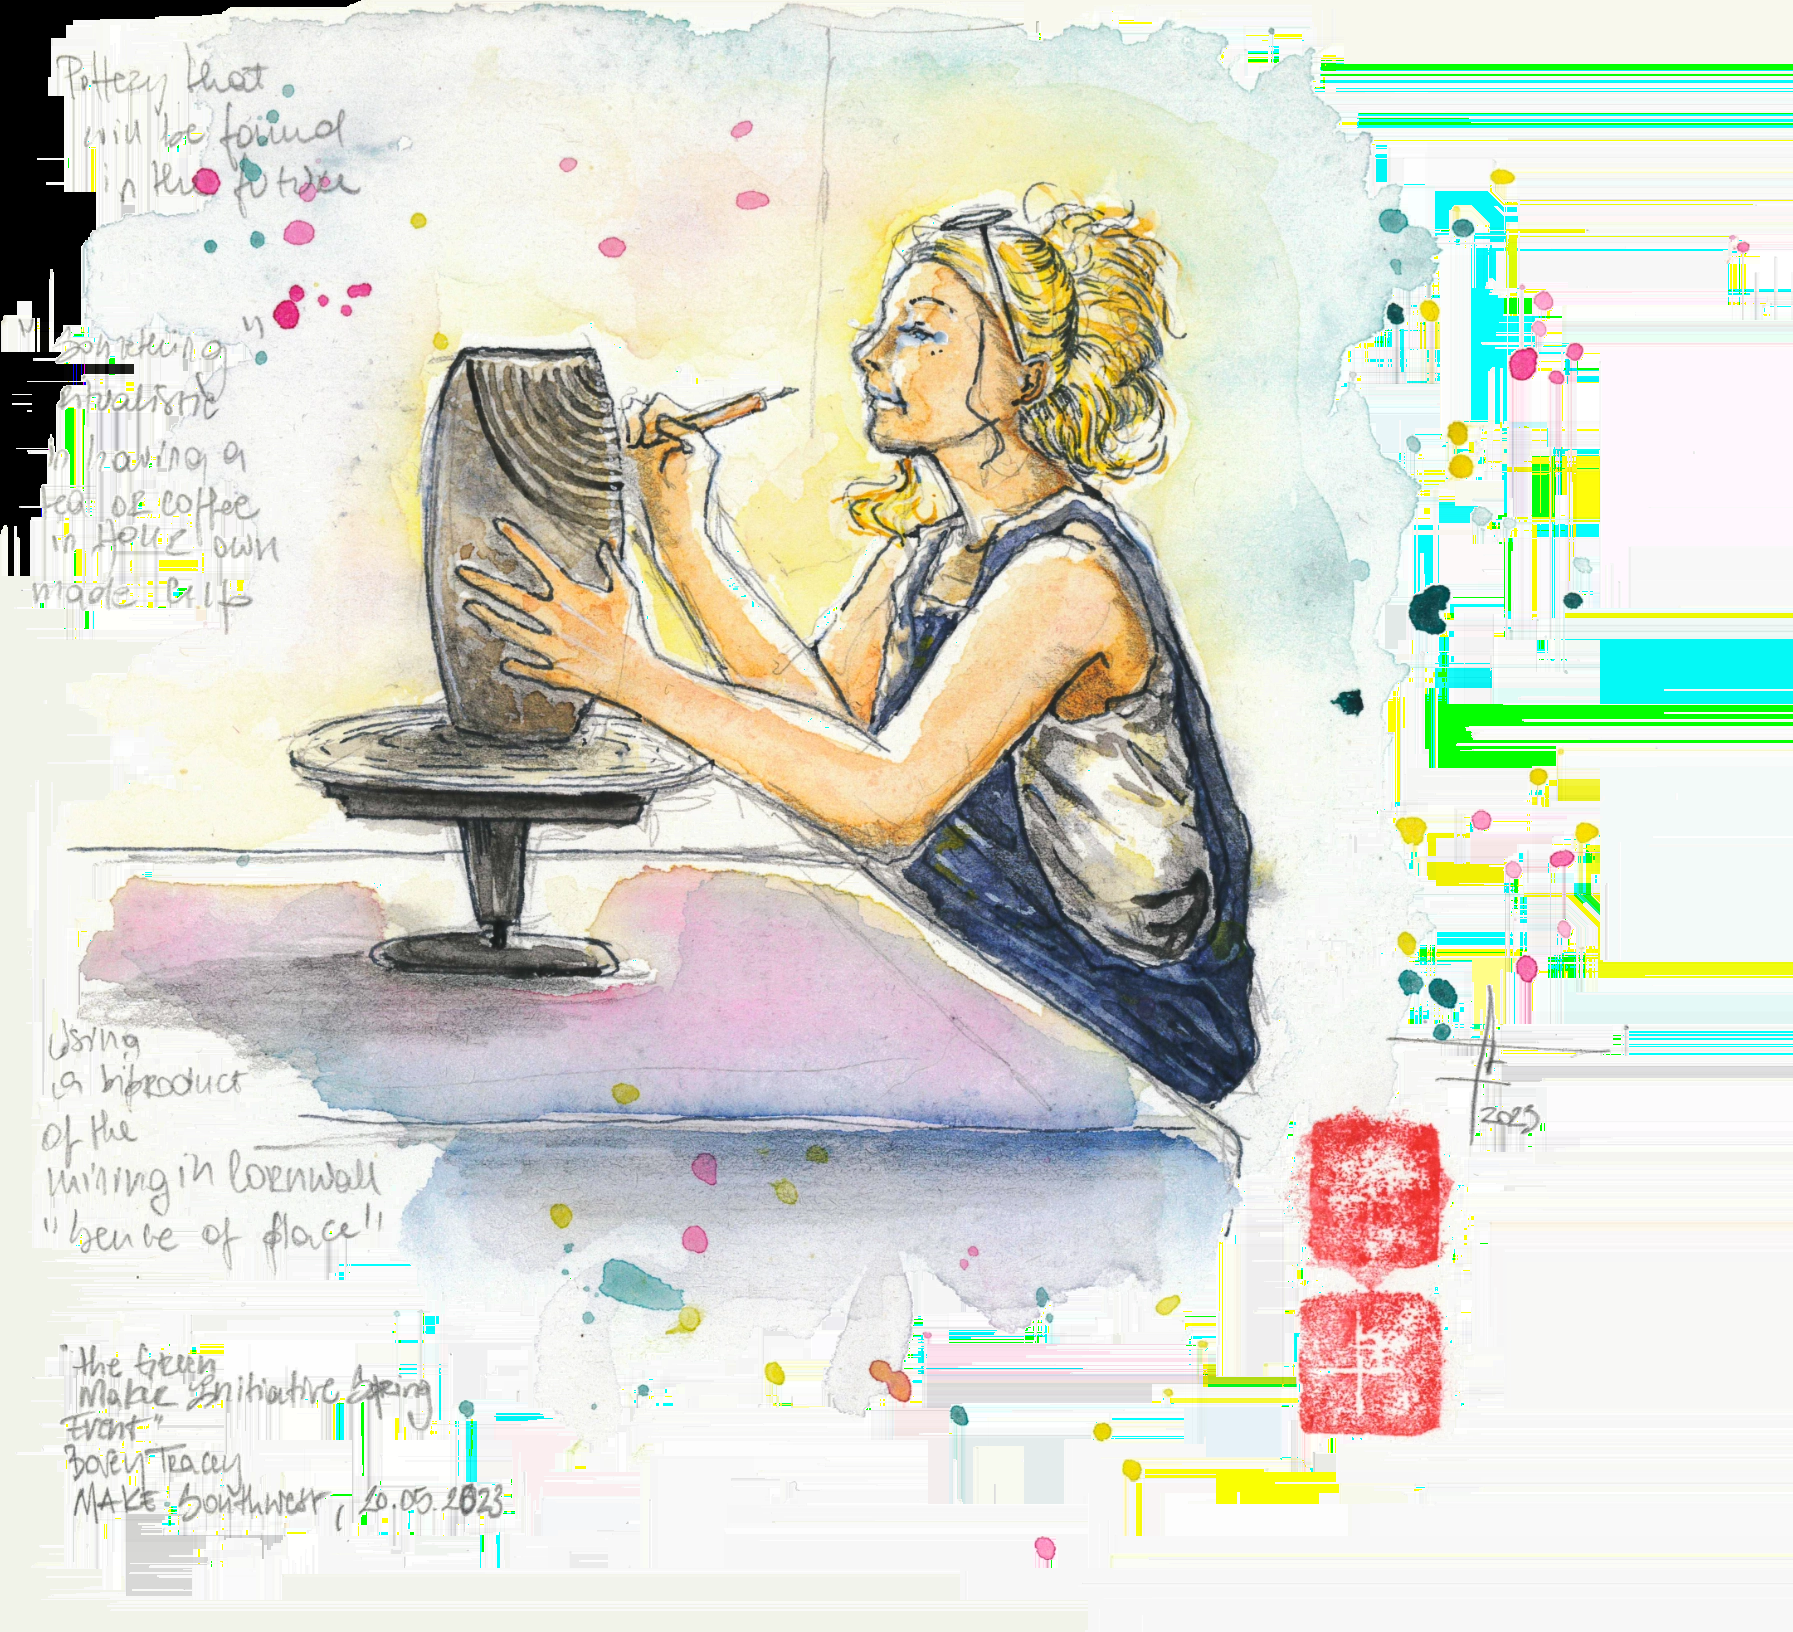 Pottery that
will be found
in the future
"Something"
ritualistic
in having a
tea or coffee
in your own
made cup
Using
a biproduct
of the
mining in Cornwall
"sence of place"
"The Green
Maker Initiative Spring
Event"
Bovey Tracey
MAKE Southwest, 20.05.2023
2023